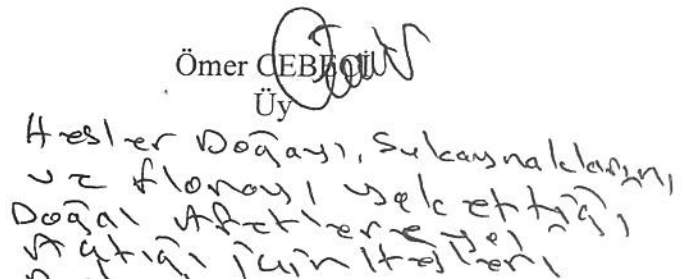 Ömer CEBECİ
Üy
Hesler Doğayı, Su kaynaklarını,
ve florayı yok ettiği,
Doğal Afetlere yol
Açtığı için Hesleri